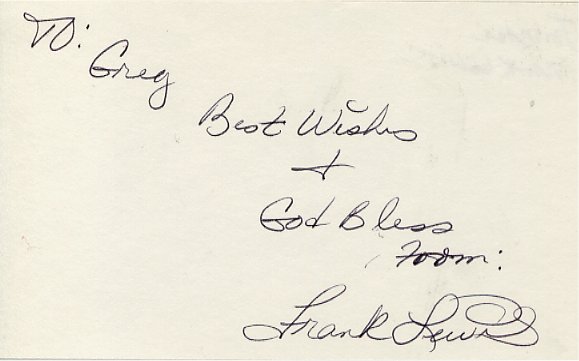 To:
Greg
Best Wishes
+
God Bless
From:
Frank Lewis